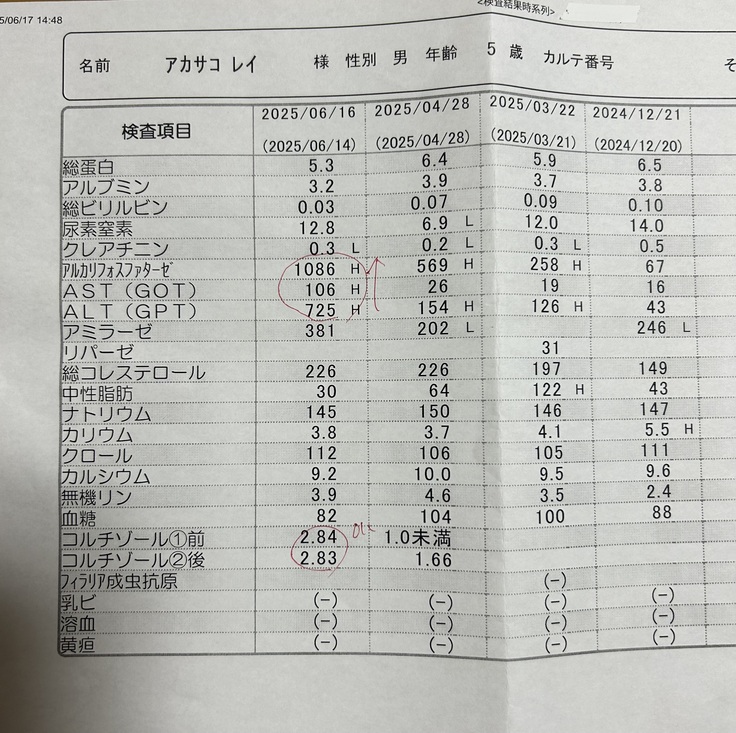 5/06/17 14:48
検査結果時系列>
名前 アカサコ レイ 様 性別 男 年齢 5 歳 カルテ番号 そ
検査項目 2025/06/16 2025/04/28 2025/03/22 2024/12/21
(2025/06/14) (2025/04/28) (2025/03/21) (2024/12/20)
総蛋白 5.3 6.4 5.9 6.5
アルブミン 3.2 3.9 3.7 3.8
総ビリルビン 0.03 0.07 0.09 0.10
尿素窒素 12.8 6.9 L 12.0 14.0
クレアチニン 0.3 L 0.2 L 0.3 L 0.5
ｱﾙｶﾘﾌｫｽﾌｧﾀｰｾﾞ 1086 H 569 H 258 H 67
ＡＳＴ（ＧＯＴ） 106 H 26 19 16
ＡＬＴ（ＧＰＴ） 725 H 154 H 126 H 43
アミラーゼ 381 202 L 246 L
リパーゼ 31
総コレステロール 226 226 197 149
中性脂肪 30 64 122 H 43
ナトリウム 145 150 146 147
カリウム 3.8 3.7 4.1 5.5 H
クロール 112 106 105 111
カルシウム 9.2 10.0 9.5 9.6
無機リン 3.9 4.6 3.5 2.4
血糖 82 104 100 88
コルチゾール①前 2.84 1.0未満
コルチゾール②後 2.83 1.66
ﾌｨﾗﾘｱ成虫抗原 (−)
乳ビ (−) (−) (−) (−)
溶血 (−) (−) (−) (−)
黄疸 (−) (−) (−) (−)